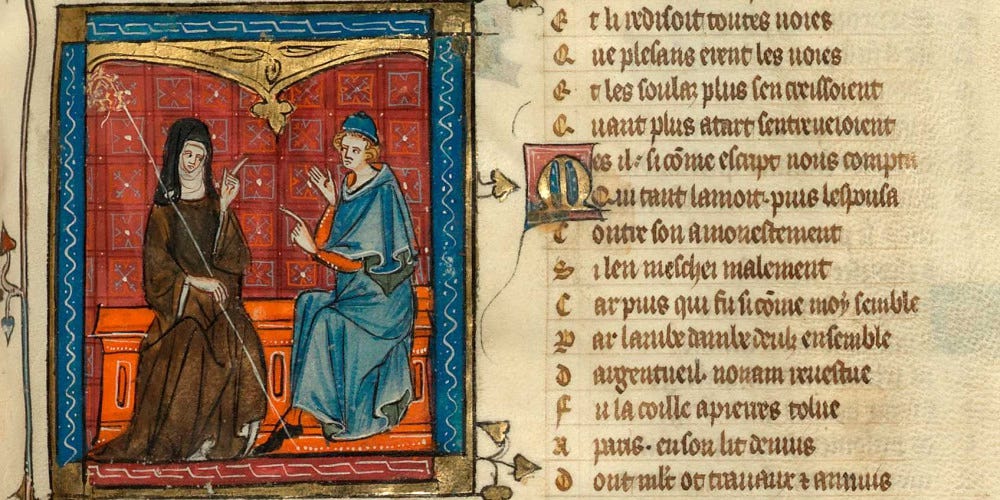 E t li redisoit toutes uoies
Q ue plesans erent les uoies
E t les soulaz plus sen croissoient
Q uant plus atart sentreueoient
M es il· si cõme escript nous compta
Q ui tant lamoit· puis lespousa
C ontre son amonestement
S i len meschei malement
C ar puis qui fu si cõme moy semble
P ar lambe dambe deulz ensemble
D argentueil· nonain reuestue
F u la coille a pierres tolue
A paris· en son lit de nuis
D ont ml't ot trauaux ⁊ annuis